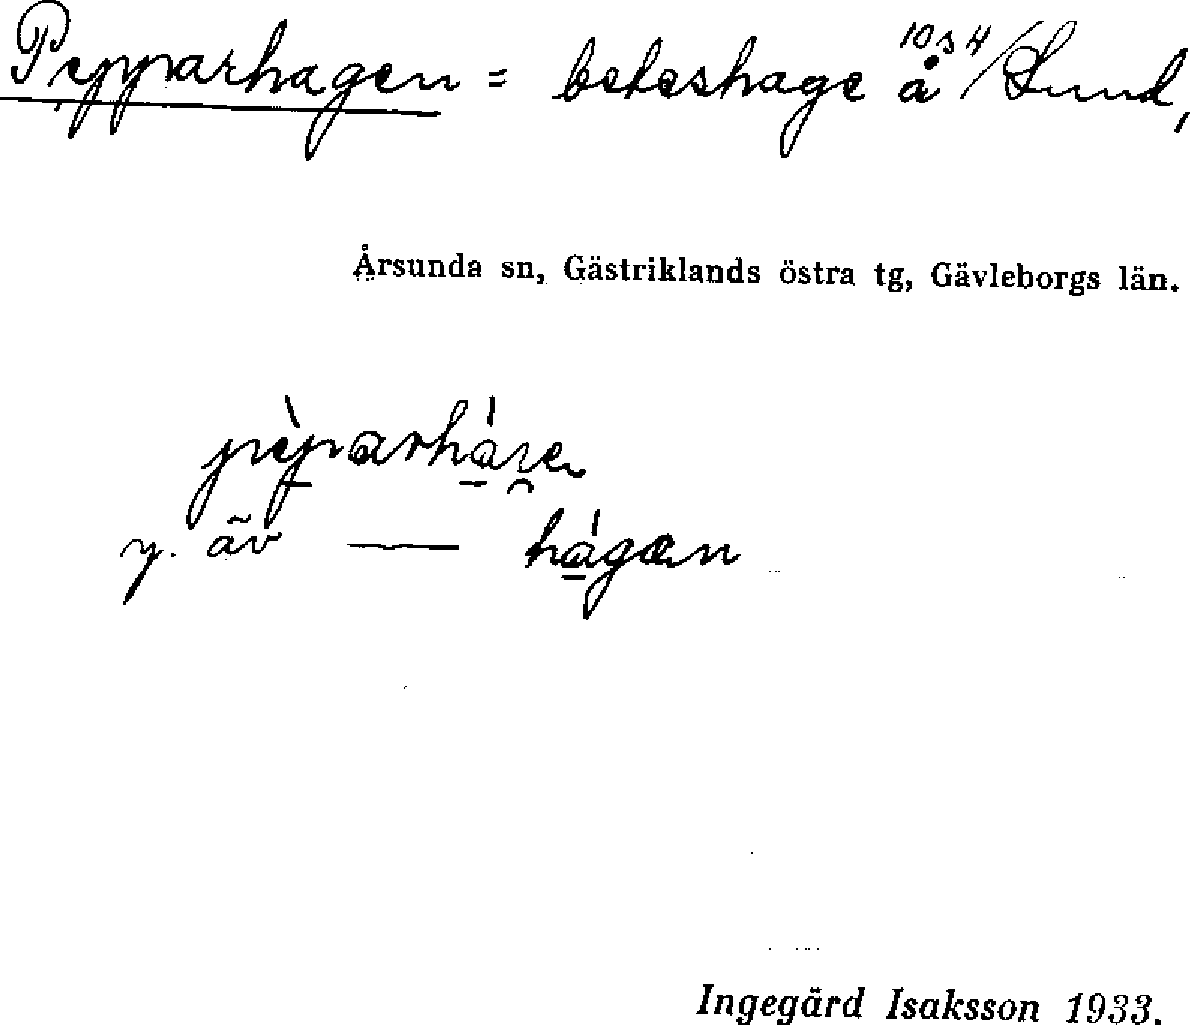 Pepparhagen = beteshage å 10s4/Lund,
Årsunda sn, Gästriklands östra tg, Gävleborgs län.
y. äv — hágæn
Ingegärd Isaksson 1933.